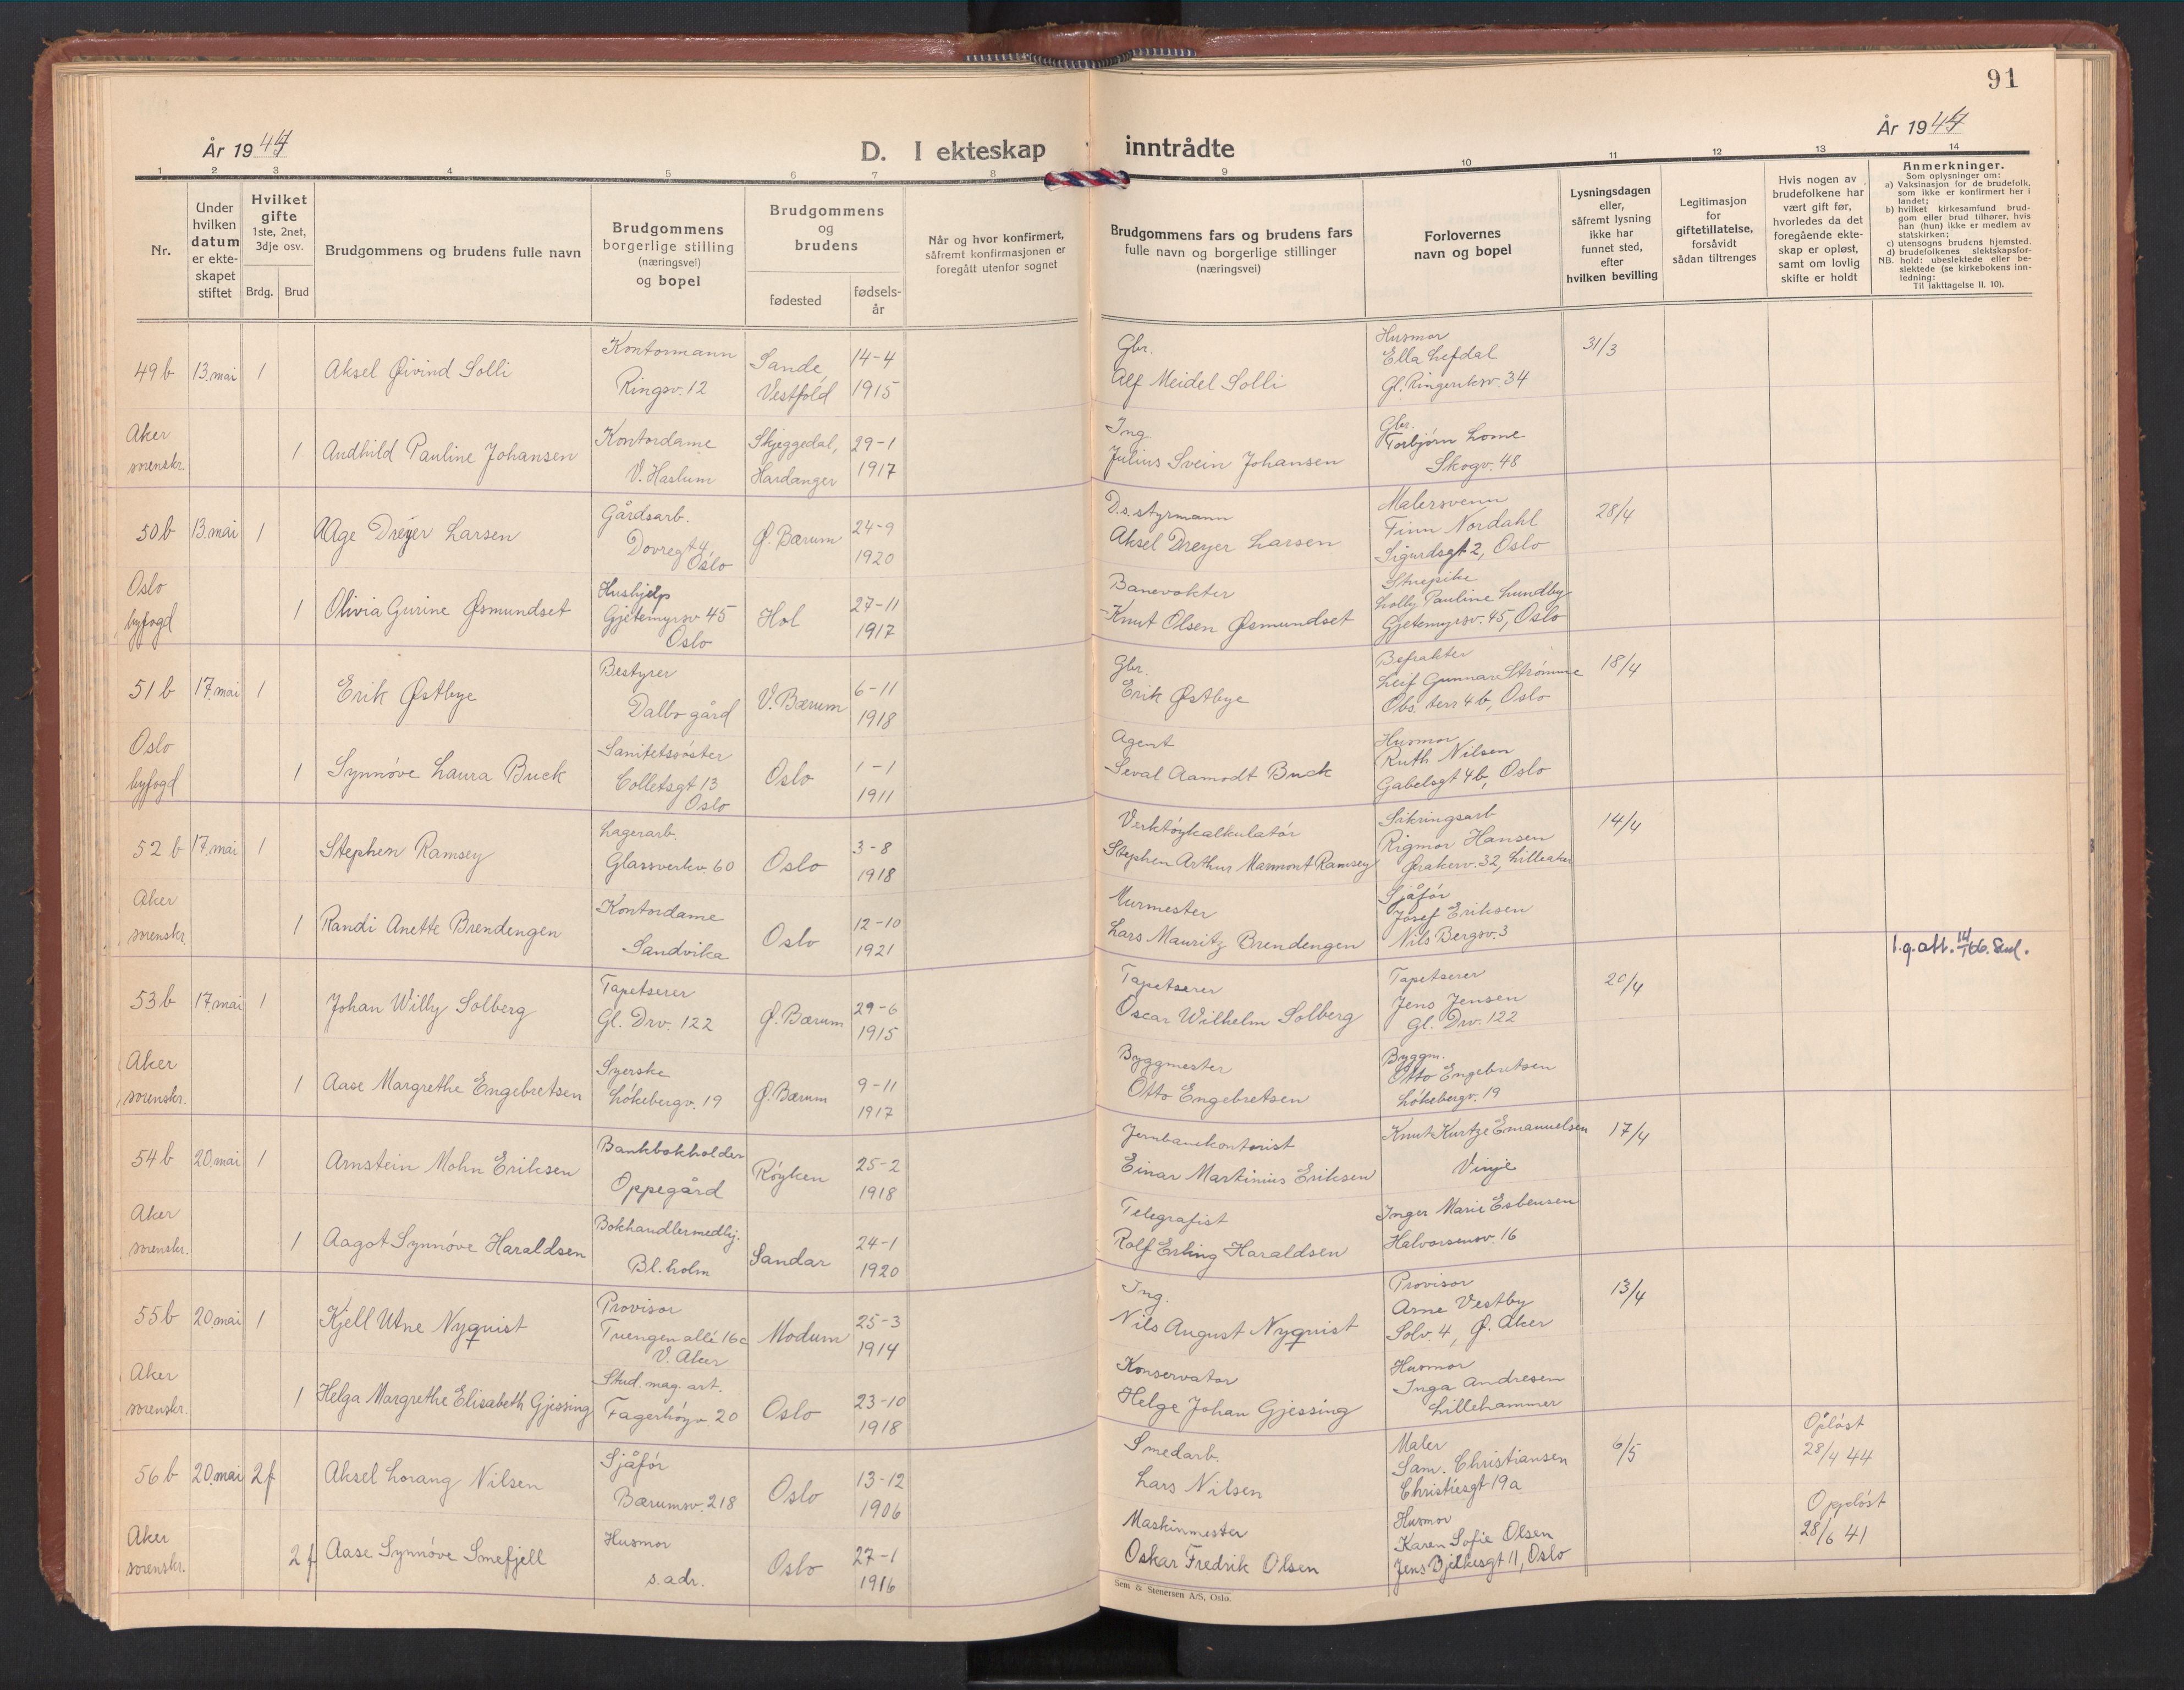 91
År 1944
D. I ekteskap inntrådte
År 1944
1 2 3 4 5 6 7 8 9 10 11 12 13 14
Nr.
Under hvilken datum er ekteskapet stiftet
Hvilket gifte 1ste, 2net, 3dje osv.
Brdg. Brud
Brudgommens og brudens fulle navn
Brudgommens borgerlige stilling (næringsvei) og bopel
Brudgommens og brudens
fødested
fødselsår
Når og hvor konfirmert, såfremt konfirmasjonen er foregått utenfor sognet
Brudgommens fars og brudens fars fulle navn og borgerlige stillinger (næringsvei)
Forlovernes navn og bopel
Lysningsdagen eller, såfremt lysning ikke har funnet sted, efter hvilken bevilling
Legitimasjon for giftetillatelse, forsåvidt sådan tiltrenges
Hvis nogen av brudefolkene har vært gift før, hvorledes da det foregående ekteskap er opløst, samt om lovlig skifte er holdt
Anmerkninger.
Som oplysninger om:
a) Vaksinasjon for de brudefolk, som ikke er konfirmert her i landet;
b) hvilket kirkesamfund brudgom eller brud tilhører, hvis han (hun) ikke er medlem av statskirken;
c) utensogns brudens hjemsted.
d) brudefolkenes slektskapsforhold: ubeslektede eller beslektede (se kirkebokens innledning:
NB.
Til iakttagelse II. 10).
49b 13.mai 1 Aksel Øivind Solli Kontormann Ringsv. 12 Sande, Vestfold 14-4 1915 Gbr. Alf Meidel Solli Husmor Ella Lefdal Gl. Ringeriksv. 34 31/3
Aker sorenskr. 1 Audhild Pauline Johansen Kontordame V. Haslum Skjeggedal, Hardanger 29-1 1917 Ing Julius Svein Johansen Gbr. Torbjørn Lome Skogv. 48
50b 13.mai 1 Aage Dreyer Larsen Gårdsarb. Dovregt 4, Oslo Ø. Bærum 24-9 1920 D.s. styrmann Aksel Dreyer Larsen Malersvenn Finn Nordahl Sigurdsgt 2, Oslo 28/4
Oslo byfogd 1 Olivia Gurine Øsmundset Hushjelp Gjetemyrsv 45 Oslo Hol 27-11 1917 Banevokter Knut Olsen Øsmundset Stuepike Lolly Pauline Lundby Gjetemyrsv. 45, Oslo
51b 17.mai 1 Erik Østbye Bestyrer Dalbo gård V. Bærum 6-11 1918 Gbr. Erik Østbye Befrakter Leif Gunnar Strømme Obs. terr 4b, Oslo 18/4
Oslo byfogd 1 Synnöve Laura Buck Sanitetssöster Colletsgt 13 Oslo Oslo 1-1 1911 Agent Seval Aamodt Buck Husmor Ruth Nilsen Gabelsgt 4b, Oslo
52b 17.mai 1 Stephen Ramsey Lagerarb. Glassverkv. 60 Oslo 3-8 1918 Verktöykalkulatör Stephen Arthur Marmont Ramsey Sikringsarb Rigmor Hansen Ørakerv. 32, Lilleaker 14/4
Aker sorenskr. 1 Randi Anette Brendengen Kontordame Sandvika Oslo 12-10 1921 Murmester Lars Mauritz Brendengen Sjåför Josef Eriksen Nils Bergsv. 3
53b 17.mai 1 Johan Willy Solberg Tapetserer Gl. Drv. 122 Ø. Bærum 29-6 1915 Tapetserer Oscar Wilhelm Solberg Tapetserer Jens Jensen Gl. Drv. 122 20/4 l.g.att.
Aker sorenskr. 1 Aase Margrethe Engebretsen Syerske Lökebergv. 19 Ø. Bærum 9-11 1917 Byggmester Otto Engebretsen Byggm. Otto Engebretsen Lökebergv. 19
54b 20.mai 1 Arnstein Mohn Eriksen Bankbokholder Oppegård Röyken 25-2 1918 Jernbanekontorist Einar Martinius Eriksen Knut Kurtze Emanuelsen Vinje 17/4
Aker sorenskr. 1 Aagot Synnöve Haraldsen Bokhandlermedhj. Bl.holm Sandar 24-1 1920 Telegrafist Rolf Erling Haraldsen Inger Marie Esbensen Halvorsensv. 16
55b 20.mai 1 Kjell Utne Nyquist Provisor Tuengen allé 16c V. Aker Modum 25-3 1914 Ing. Nils August Nyquist Provisor Arne Vestby Solv. 4, Ø. Aker 13/4
Aker sorenskr. 1 Helga Margrethe Elisabeth Gjessing Stud. mag. art. Fagerhöyv 20 Oslo 23-10 1918 Konservator Helge Johan Gjessing Husmor Inga Andresen Lillehammer
56b 20.mai 2f Aksel Lorang Nilsen Sjåför Bærumsv. 218 Oslo 13-12 1906 Smedarb. Lars Nilsen Maler Sam. Christiansen Christiesgt 19a 6/5 Opløst 28/4 44
Aker sorenskr. 2f Aase Synnöve Smefjell Husmor s. adr. Oslo 27-1 1916 Maskinmester Oskar Fredrik Olsen Husmor Karen Sofie Olsen Jens Bjelkesgt 11, Oslo Oppløst 28/6 41
Sem & Stenersen A/S, Oslo.